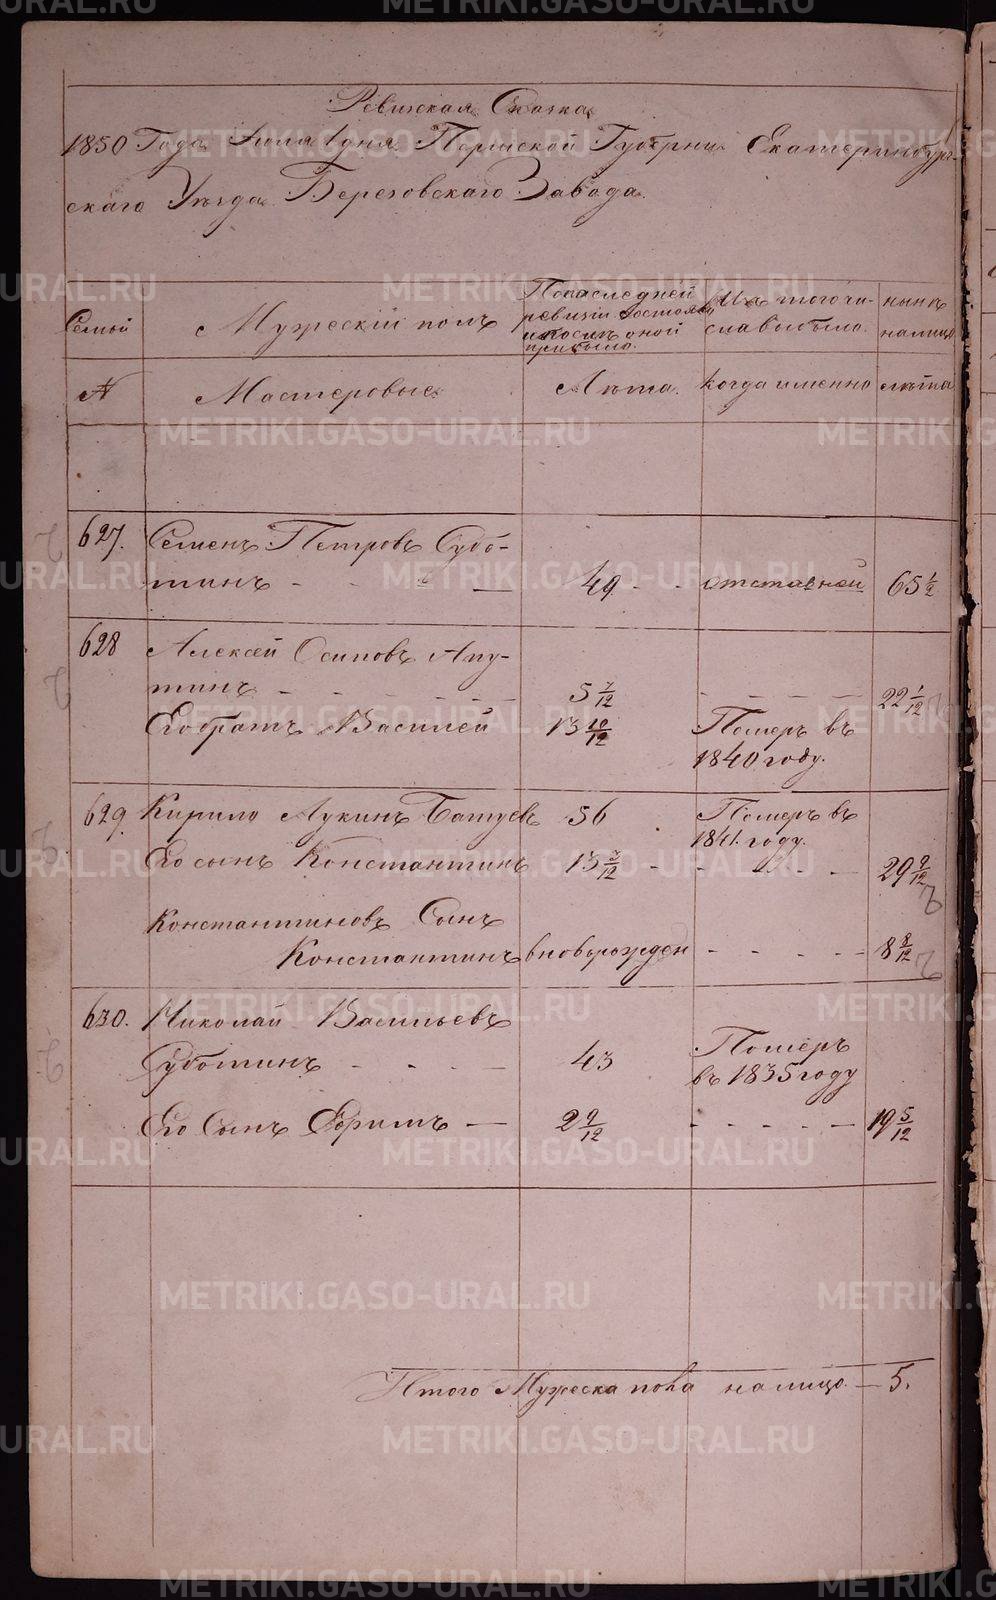 Ревизская Сказка
1850 Года Июля 1 дня Пермской Губернии Екатеринбург-
скаго Уезда Березовскаго Завода
Семьи
Мужескiй полъ
По последней
ревизiи состояло
и после оной
прибыло.
Изъ того чи-
сла выбыло.
ныне
на лицо
№
Мастеровые
Лета.
когда именно
лета
627.
Семенъ Петровъ Субо-
тинъ
49
отставной
65 1/2
628
Алексей Осиповъ Апу-
тинъ
5 7/12
22 1/12
Его братъ Василей
13 10/12
Померъ въ
1840 году.
629
Кирило Лукинъ Батуевъ
56
Померъ въ
1841. году.
Его сынъ Константинъ
13 3/12
29 9/12
Константиновъ Сынъ
Константинъ
вновьрожден
8 8/12
630.
Николай Васильевъ
Суботинъ
43
Померъ
въ 1835 году
Его Сынъ
2 9/12
19 5/12
Итого Мужеска пола налицо — 5.
METRIKI.GASO-URAL.RU